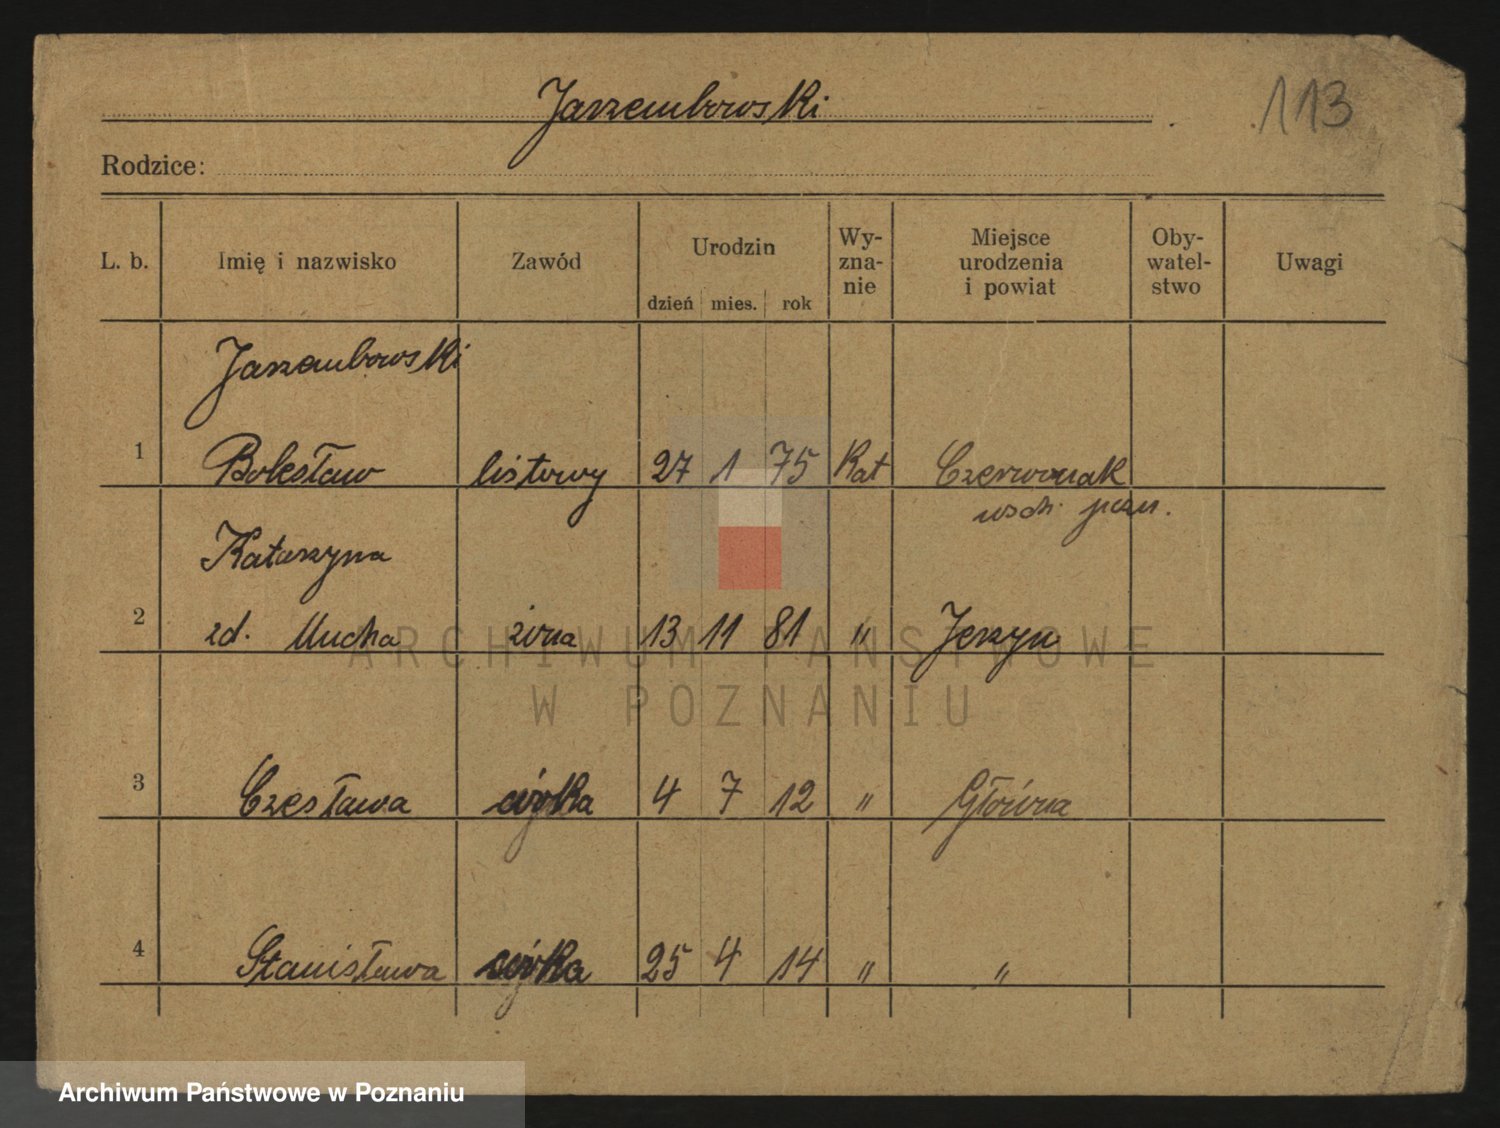 Jarzembowski
113
Rodzice:
L. b. Imię i nazwisko Zawód Urodzin dzień mies. rok Wy-zna-nie Miejsce urodzenia i powiat Oby-watel-stwo Uwagi
Jarzembowski
1 Bolesław listowy 27 1 75 Kat Czerwonak
wsch. pozn.
Katarzyna
2 zd. Mucha żona 13 11 81 " Jerzyn
3 Czesława córka 4 7 12 " Główna
4 Stanisława córka 25 4 14 " "
ARCHIWUM PAŃSTWOWE
W POZNANIU
Archiwum Państwowe w Poznaniu